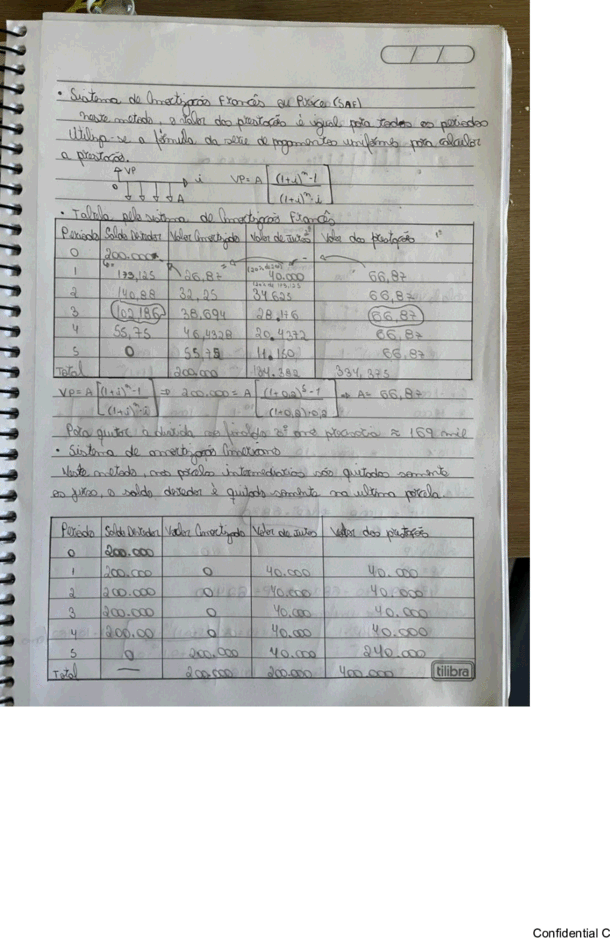 • Sistema de Amortização Francês ou Price (SAF)
Neste metodo, o valor das prestação é igual para todos os periodos
Utiliza-se a fórmula da serie de pagamentos uniforms para calcular
a prestação.
VP i VP = A [(1+i)^n - 1 / (1+i)^n . i]
0 A
• Tabela pelo sistema de Amortização Francês
Periodo Saldo Devedor Valor Amortizado Valor de Juros Valor das prestação
0 200.000
1 173,125 26,87 40.000 66,87
2 140,88 32,25 34625 66,87
3 102,186 38,694 28.176 66,87
4 55,75 46,4328 20.4372 66,87
5 0 55,75 11.150 66,87
Total 200.000 134.392 334,375
VP = A [(1+i)^n - 1 / (1+i)^n . i] ⇒ 200.000 = A [(1+0,2)^5 - 1 / (1+0,2)^5 . 0,2] ⇒ A = 66,87
Para quitar a divida ao final do 3º mes precisaria ≈ 169 mil
• Sistema de amortização Americano
Neste metodo, nas parcelas intermediarias são quitados somente
os juros, o saldo devedor é quitado somente na ultima parcela.
Periodo Saldo Devedor Valor Amortizado Valor de Juros Valor das prestação
0 200.000
1 200.000 0 40.000 40.000
2 200.000 0 40.000 40.000
3 200.000 0 40.000 40.000
4 200.00 0 40.000 40.000
5 0 200.000 40.000 240.000
Total — 200.000 200.000 400.000
tilibra
Confidential C